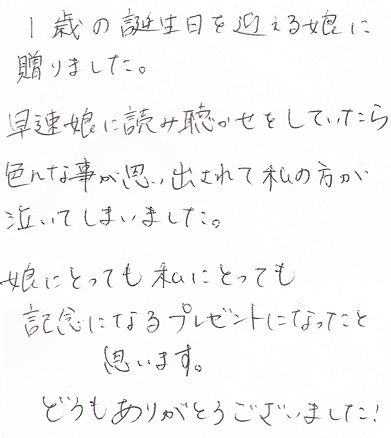 1歳の誕生日を迎える娘に
贈りました。
早速娘に読み聴かせをしていたら
色んな事が思い出されて私の方が
泣いてしまいました。
娘にとっても私にとっても
記念になるプレゼントになったこと
思います。
どうもありがとうございました!